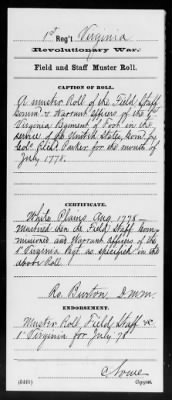 1st Reg't Virginia
Revolutionary War.
Field and Staff Muster Roll.
CAPTION OF ROLL.
A muster Roll of the Field, Staff,
Comm. & Warrant Officers of the 1st
Virginia Regiment of Foot in the
service of the United States, Com. by
Col. Richd. Parker for the month of
July 1778.
CERTIFICATE.
White Plains Aug. 1778
Mustered then the Field, Staff, Com-
missioned and Warrant Officers of the
1st Virginia Regt. as specified in the
above Roll.
Ro. Burton, D.M.M.
ENDORSEMENT.
Muster Roll, Field, Staff &c.
1st Virginia for July 78
(649)
Copyist.